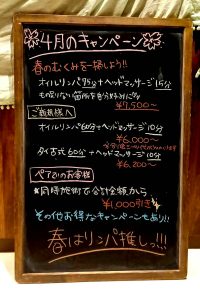 4月のキャンペーン
春のむくみを一掃しよう!!
オイルリンパ75分+ヘッドマッサージ15分
¥7,500〜
ご新規様へ
オイルリンパ60分+ヘッドマッサージ10分
¥6,000〜
タイ古式60分+ヘッドマッサージ10分
¥6,200〜
ペアでのお客様
*同時施術で合計金額から
¥1,000引き
その他お得なキャンペーンもあり!!
春はリンパ推しっ!!!